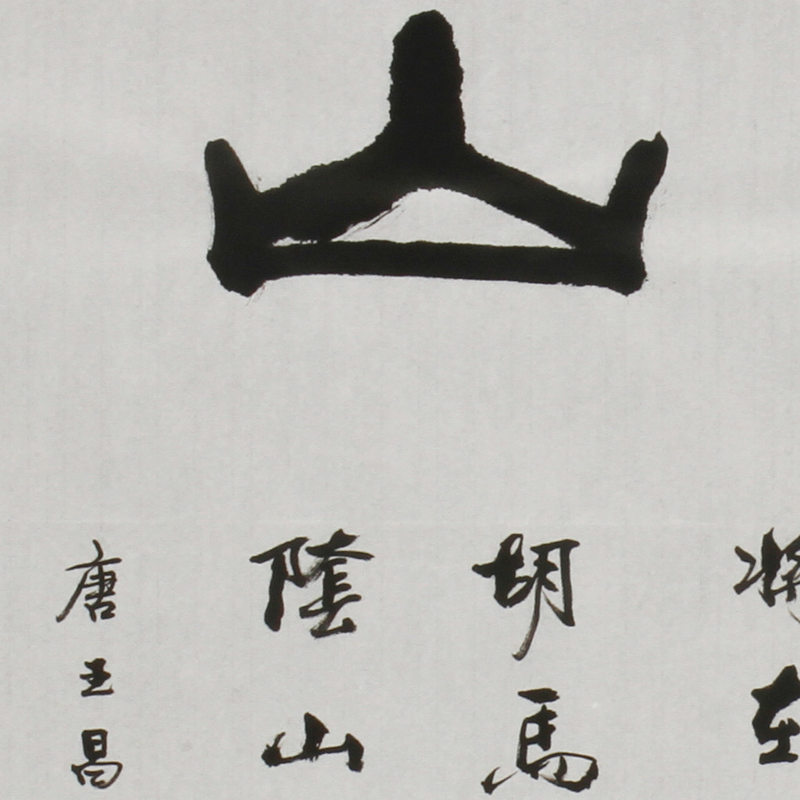 山
将在
胡馬
陰山
唐王昌